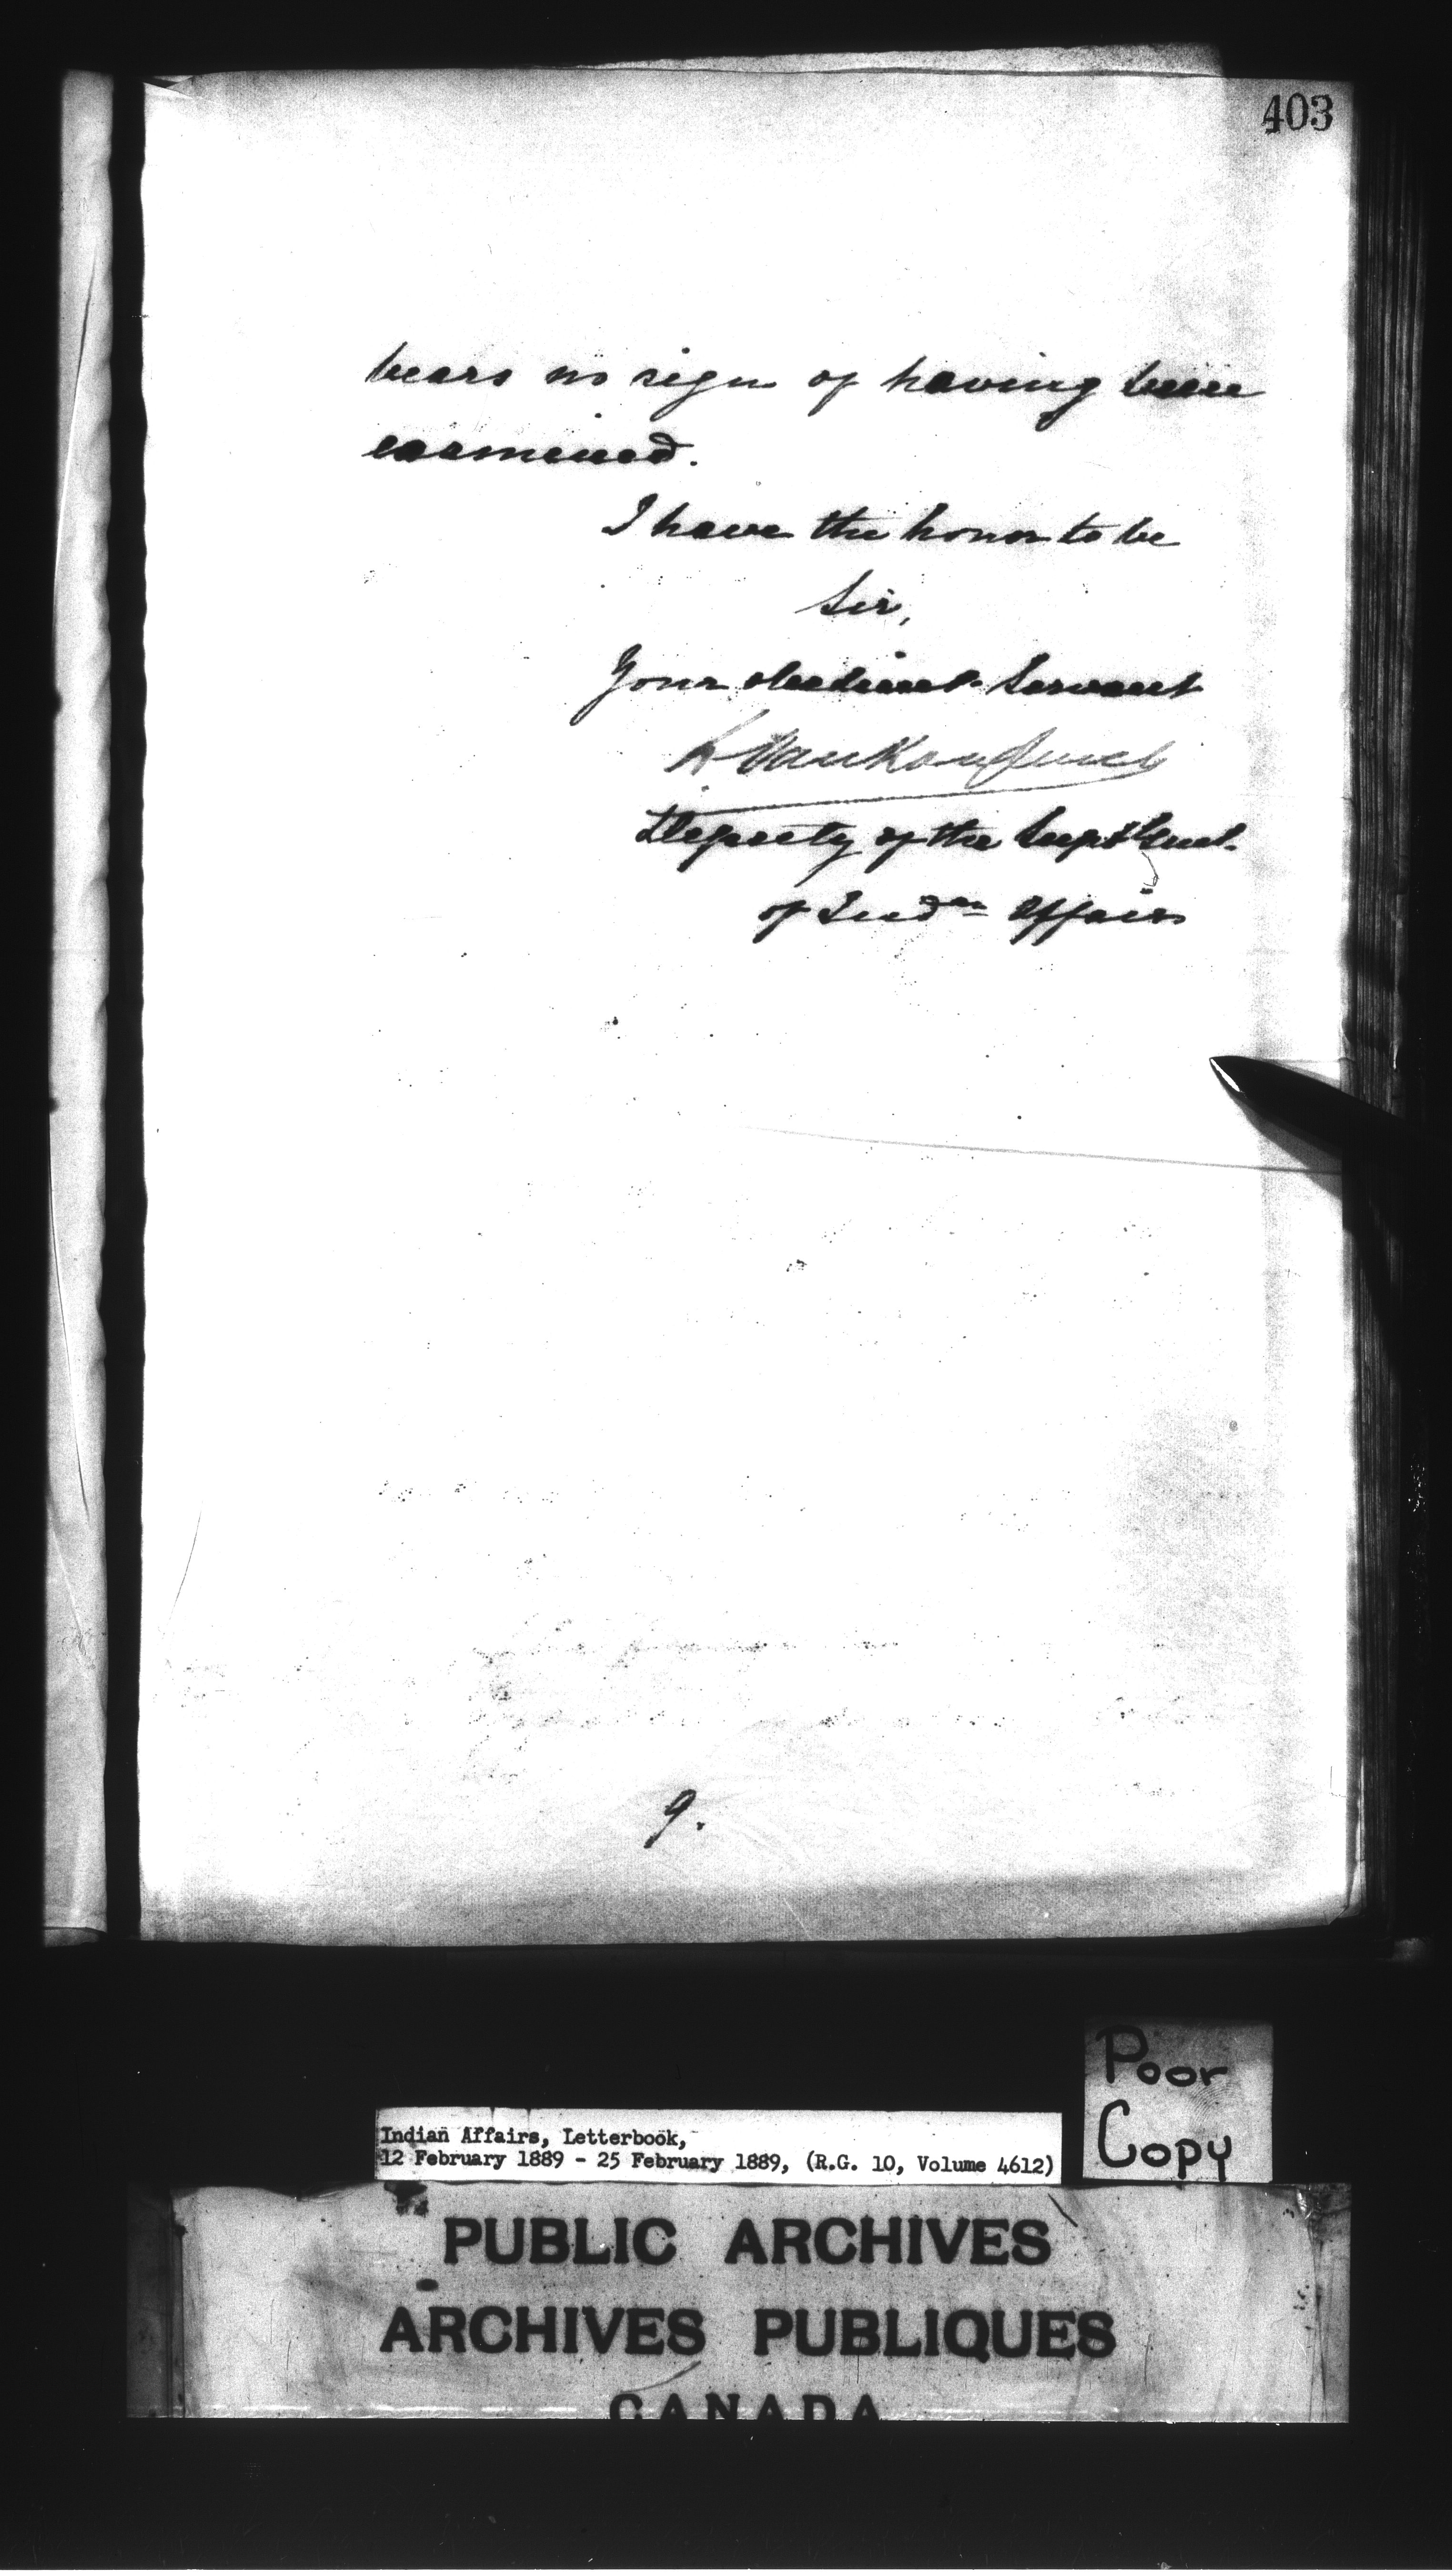 403
bears no sign of having been
examined.
I have the honor to be
Sir,
Your obedient Servant
L Vankoughnet
Deputy of the Supt Genl.
of Indn Affairs
9.
Poor
Copy
Indian Affairs, Letterbook,
12 February 1889 - 25 February 1889, (R.G. 10, Volume 4612)
PUBLIC ARCHIVES
ARCHIVES PUBLIQUES
CANADA